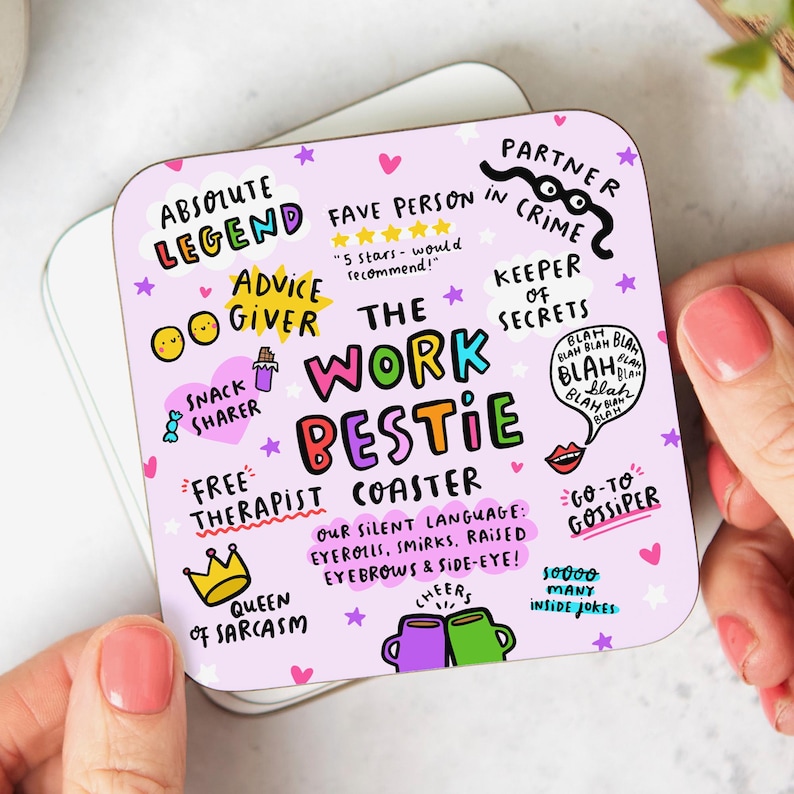 ABSOLUTE
LEGEND
FAVE PERSON
"5 stars - would
recommend!"
PARTNER
in CRIME
ADVICE
GIVER
KEEPER
OF
SECRETS
THE
WORK
BESTiE
COASTER
SNACK
SHARER
BLAH
BLAH BLAH BLAH
BLAH
BLAH
BLAH
blah
BLAH BLAH
BLAH
FREE
THERAPIST
GO-TO
GOSSIPER
OUR SILENT LANGUAGE:
EYEROLLS, SMIRKS, RAISED
EYEBROWS & SIDE-EYE!
QUEEN
OF SARCASM
CHEERS
SOOOO
MANY
INSIDE JOKES